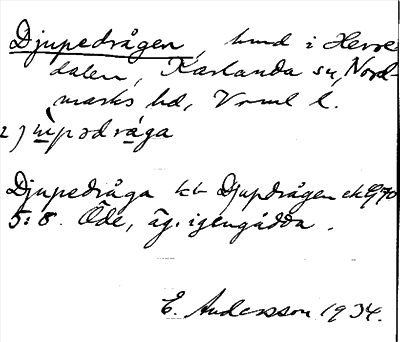 Djupedrågen, hmd i Herre-
dalen, Karlanda sn, Nord-
marks hd, Vrml l.
2) 
Djupedråga kb Djupdrågen ekG70
5:8. Öde, äg. igengådda.
E. Andersson 1934.